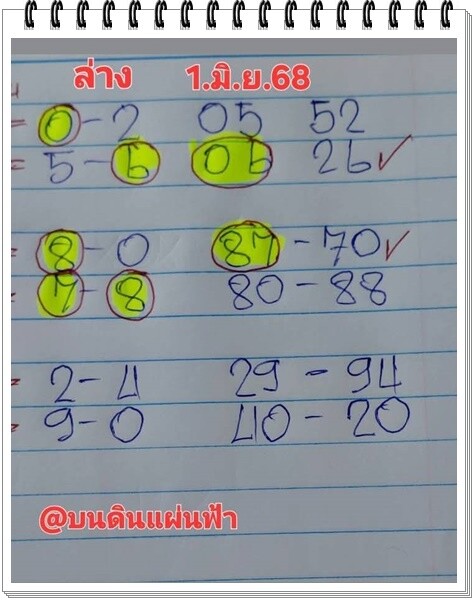 ล่าง 1.มิ.ย.68
= 0 - 2 05 52
= 5 - 6 06 26 ✓
= 8 - 0 87 - 70 ✓
= 7 - 8 80 - 88
= 2 - 4 29 - 94
= 9 - 0 40 - 20
@บนดินแผ่นฟ้า